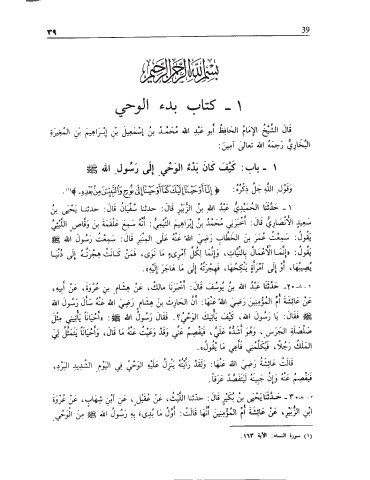 ٣٩
39
بسم الله الرحمن الرحيم
١ - كتاب بدء الوحي
قَالَ الشَّيْخُ الإِمَامُ الحَافِظُ أبو عَبدِ الله مُحَمَّدُ بنُ إسْمعِيلَ بنِ إِبْرَاهِيمَ بنِ المُغِيرَةِ
البُخَارِيُّ رَحِمَهُ الله تعالى آمين:
١ - باب: كَيْفَ كَانَ بَدْءُ الوَحْيِ إلَى رَسُولِ الله ﷺ
وَقَوْلِ اللهِ جَلَّ ذِكْرُهُ: ﴿إِنَّا أَوْحَيْنَا إِلَيْكَ كَمَا أَوْحَيْنَا إِلَى نُوحٍ وَالنَّبِيِّينَ مِنْ بَعْدِهِ﴾(١).
١ - حَدَّثَنَا الحُمَيْدِيُّ عَبْدُ الله بنُ الزُّبَيْرِ قَالَ: حدثنا سُفْيَانُ قَالَ: حدثنا يَحْيَى بنُ
سَعِيدٍ الأَنْصَارِيُّ قَالَ: أَخْبَرَنِي مُحَمَّدُ بنُ إبْرَاهِيمَ التَّيْمِيُّ: أنَّهُ سَمِعَ عَلْقَمَةَ بنَ وقَّاصٍ اللَّيْثِيَّ
يَقُولُ: سَمِعْتُ عُمَرَ بنَ الخَطَّابِ رَضِيَ الله عَنْهُ عَلَى المِنْبَرِ قَالَ: سَمِعْتُ رَسُولَ الله ﷺ
يَقُولُ: «إنَّمَا الأَعْمَالُ بِالنِّيَّاتِ، وَإنَّمَا لِكُلِّ امْرِىءٍ مَا نَوَى، فَمَنْ كَانَتْ هِجْرَتُهُ إلَى دُنْيَا
يُصِيبُهَا، أوْ إلَى امْرَأَةٍ يَنْكِحُهَا، فَهِجْرَتُهُ إلَى مَا هَاجَرَ إلَيْهِ».
حَدَّثَنَا عَبْدُ الله بنُ يُوسُفَ قَالَ: أَخْبَرَنَا مَالِكٌ، عَنْ هِشَامِ بنِ عُرْوَةَ، عَنْ أبِيهِ،
عَنْ عَائِشَةَ أُمِّ المُؤْمِنِينَ رَضِيَ الله عَنْهَا: أنَّ الحَارِثَ بنَ هِشَامٍ رَضِيَ الله عَنْهُ سَأَلَ رَسُولَ الله
ﷺ فَقَالَ: يَا رَسُولَ الله، كَيْفَ يَأْتِيكَ الوَحْيُ؟. فَقَالَ رَسُولُ الله ﷺ: «أحْيَانًا يَأْتِينِي مِثْلَ
صَلْصَلَةِ الجَرَسِ، وَهُوَ أَشَدُّهُ عَلَيَّ، فَيُفْصَمُ عَنِّي وَقَدْ وَعَيْتُ عَنْهُ مَا قَالَ، وَأحْيَانًا يَتَمَثَّلُ لِيَ
المَلَكُ رَجُلًا، فَيُكَلِّمُنِي فَأَعِي مَا يَقُولُ».
قَالَتْ عَائِشَةُ رَضِيَ الله عَنْهَا: وَلَقَدْ رَأَيْتُهُ يَنْزِلُ عَلَيْهِ الوَحْيُ فِي اليَوْمِ الشَّدِيدِ البَرْدِ،
فَيَفْصِمُ عَنْهُ وَإنَّ جَبِينَهُ لَيَتَفَصَّدُ عَرَقًا.
حَدَّثَنَا يَحْيَى بنُ بُكَيْرٍ قَالَ: حدثنا اللَّيْثُ، عَنْ عُقَيْلٍ، عَنِ ابْنِ شِهَابٍ، عَنْ عُرْوَةَ
ابْنِ الزُّبَيْرِ، عَنْ عَائِشَةَ أُمِّ المُؤْمِنِينَ أنَّهَا قَالَتْ: أَوَّلُ مَا بُدِىءَ بِهِ رَسُولُ الله ﷺ مِنَ الوَحْيِ
(١) سورة النساء: الآية ١٦٣